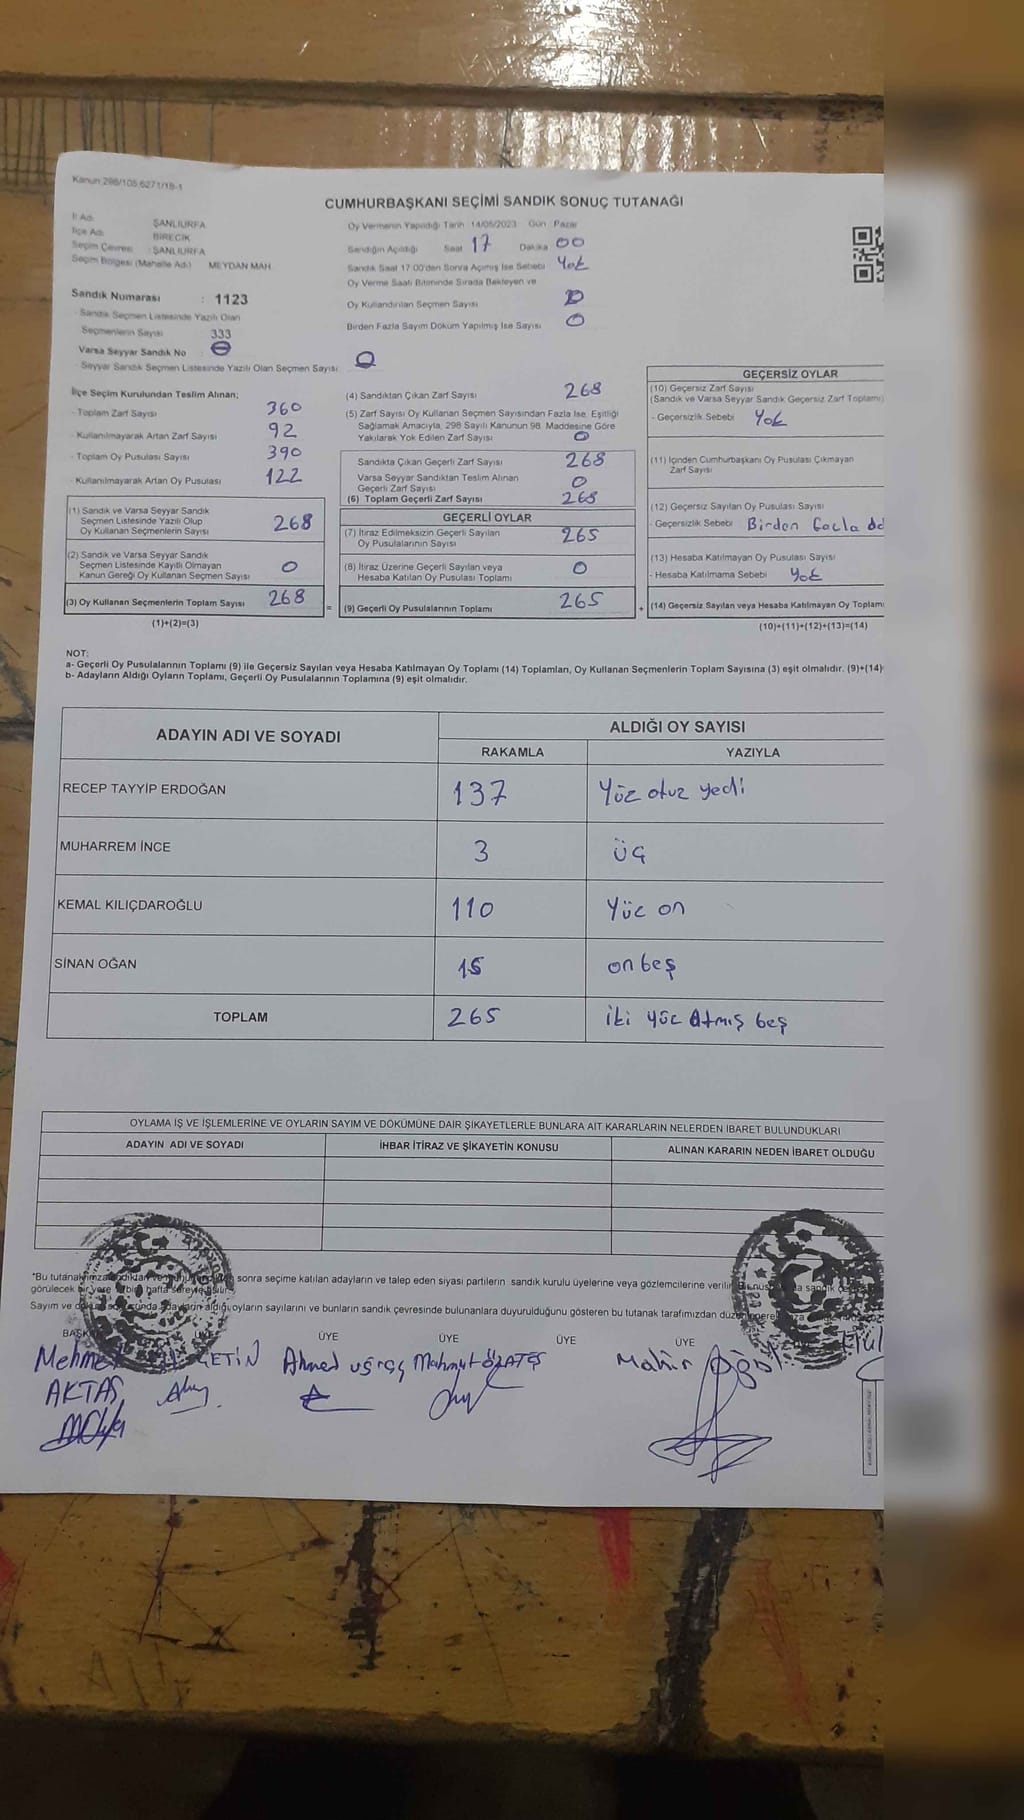 Kanun:298/105 6271/18-1
CUMHURBAŞKANI SEÇİMİ SANDIK SONUÇ TUTANAĞI
İl Adı ŞANLIURFA
İlçe Adı BİRECİK
Seçim Çevresi : ŞANLIURFA
Seçim Bölgesi (Mahalle Adı) MEYDAN MAH.
Sandık Numarası : 1123
- Sandık Seçmen Listesinde Yazılı Olan
Seçmenlerin Sayısı 333
Varsa Seyyar Sandık No 0
- Seyyar Sandık Seçmen Listesinde Yazılı Olan Seçmen Sayısı 0
Oy Vermenin Yapıldığı Tarih 14/05/2023 Gün Pazar
Sandığın Açıldığı Saat 17 Dakika 00
Sandık Saat 17.00'den Sonra Açılmış İse Sebebi Yok
Oy Verme Saati Bitiminde Sırada Bekleyen ve
Oy Kullandırılan Seçmen Sayısı 0
Birden Fazla Sayım Döküm Yapılmış İse Sayısı 0
İlçe Seçim Kurulundan Teslim Alınan;
- Toplam Zarf Sayısı 360
- Kullanılmayarak Artan Zarf Sayısı 92
- Toplam Oy Pusulası Sayısı 390
- Kullanılmayarak Artan Oy Pusulası 122
(1) Sandık ve Varsa Seyyar Sandık
Seçmen Listesinde Yazılı Olup
Oy Kullanan Seçmenlerin Sayısı 268
(2) Sandık ve Varsa Seyyar Sandık
Seçmen Listesinde Kayıtlı Olmayan
Kanun Gereği Oy Kullanan Seçmen Sayısı 0
(3) Oy Kullanan Seçmenlerin Toplam Sayısı 268
(1)+(2)=(3)
(4) Sandıktan Çıkan Zarf Sayısı 268
(5) Zarf Sayısı Oy Kullanan Seçmen Sayısından Fazla İse, Eşitliği
Sağlamak Amacıyla, 298 Sayılı Kanunun 98. Maddesine Göre
Yakılarak Yok Edilen Zarf Sayısı 0
Sandıkta Çıkan Geçerli Zarf Sayısı 268
Varsa Seyyar Sandıktan Teslim Alınan
Geçerli Zarf Sayısı 0
(6) Toplam Geçerli Zarf Sayısı 268
GEÇERLİ OYLAR
(7) İtiraz Edilmeksizin Geçerli Sayılan
Oy Pusulalarının Sayısı 265
(8) İtiraz Üzerine Geçerli Sayılan veya
Hesaba Katılan Oy Pusulası Toplamı 0
= (9) Geçerli Oy Pusulalarının Toplamı 265 +
GEÇERSİZ OYLAR
(10) Geçersiz Zarf Sayısı
(Sandık ve Varsa Seyyar Sandık Geçersiz Zarf Toplamı)
- Geçersizlik Sebebi Yok
(11) İçinden Cumhurbaşkanı Oy Pusulası Çıkmayan
Zarf Sayısı
(12) Geçersiz Sayılan Oy Pusulası Sayısı
- Geçersizlik Sebebi Birden Fazla
(13) Hesaba Katılmayan Oy Pusulası Sayısı
- Hesaba Katılmama Sebebi Yok
(14) Geçersiz Sayılan veya Hesaba Katılmayan Oy Toplamı
(10)+(11)+(12)+(13)=(14)
NOT:
a- Geçerli Oy Pusulalarının Toplamı (9) ile Geçersiz Sayılan veya Hesaba Katılmayan Oy Toplamı (14) Toplamları, Oy Kullanan Seçmenlerin Toplam Sayısına (3) eşit olmalıdır. (9)+(14)
b- Adayların Aldığı Oyların Toplamı, Geçerli Oy Pusulalarının Toplamına (9) eşit olmalıdır.
ADAYIN ADI VE SOYADI ALDIĞI OY SAYISI
RAKAMLA YAZIYLA
RECEP TAYYİP ERDOĞAN 137 Yüz otuz yedi
MUHARREM İNCE 3 üç
KEMAL KILIÇDAROĞLU 110 Yüz on
SİNAN OĞAN 15 on beş
TOPLAM 265 iki yüz Atmış beş
OYLAMA İŞ VE İŞLEMLERİNE VE OYLARIN SAYIM VE DÖKÜMÜNE DAİR ŞİKAYETLERLE BUNLARA AİT KARARLARIN NELERDEN İBARET BULUNDUKLARI
ADAYIN ADI VE SOYADI İHBAR İTİRAZ VE ŞİKAYETİN KONUSU ALINAN KARARIN NEDEN İBARET OLDUĞU
sonra seçime katılan adayların ve talep eden siyasi partilerin sandık kurulu üyelerine veya gözlemcilerine
görülecek bir yere
Sayım ve adayların aldığı oyların sayılarını ve bunların sandık çevresinde bulunanlara duyurulduğunu gösteren bu tutanak tarafımızdan
ÜYE ÜYE ÜYE ÜYE
Mehmet ÇETİN Ahmed uğraş Mahmut ÖZATEŞ Mahir
AKTAŞ